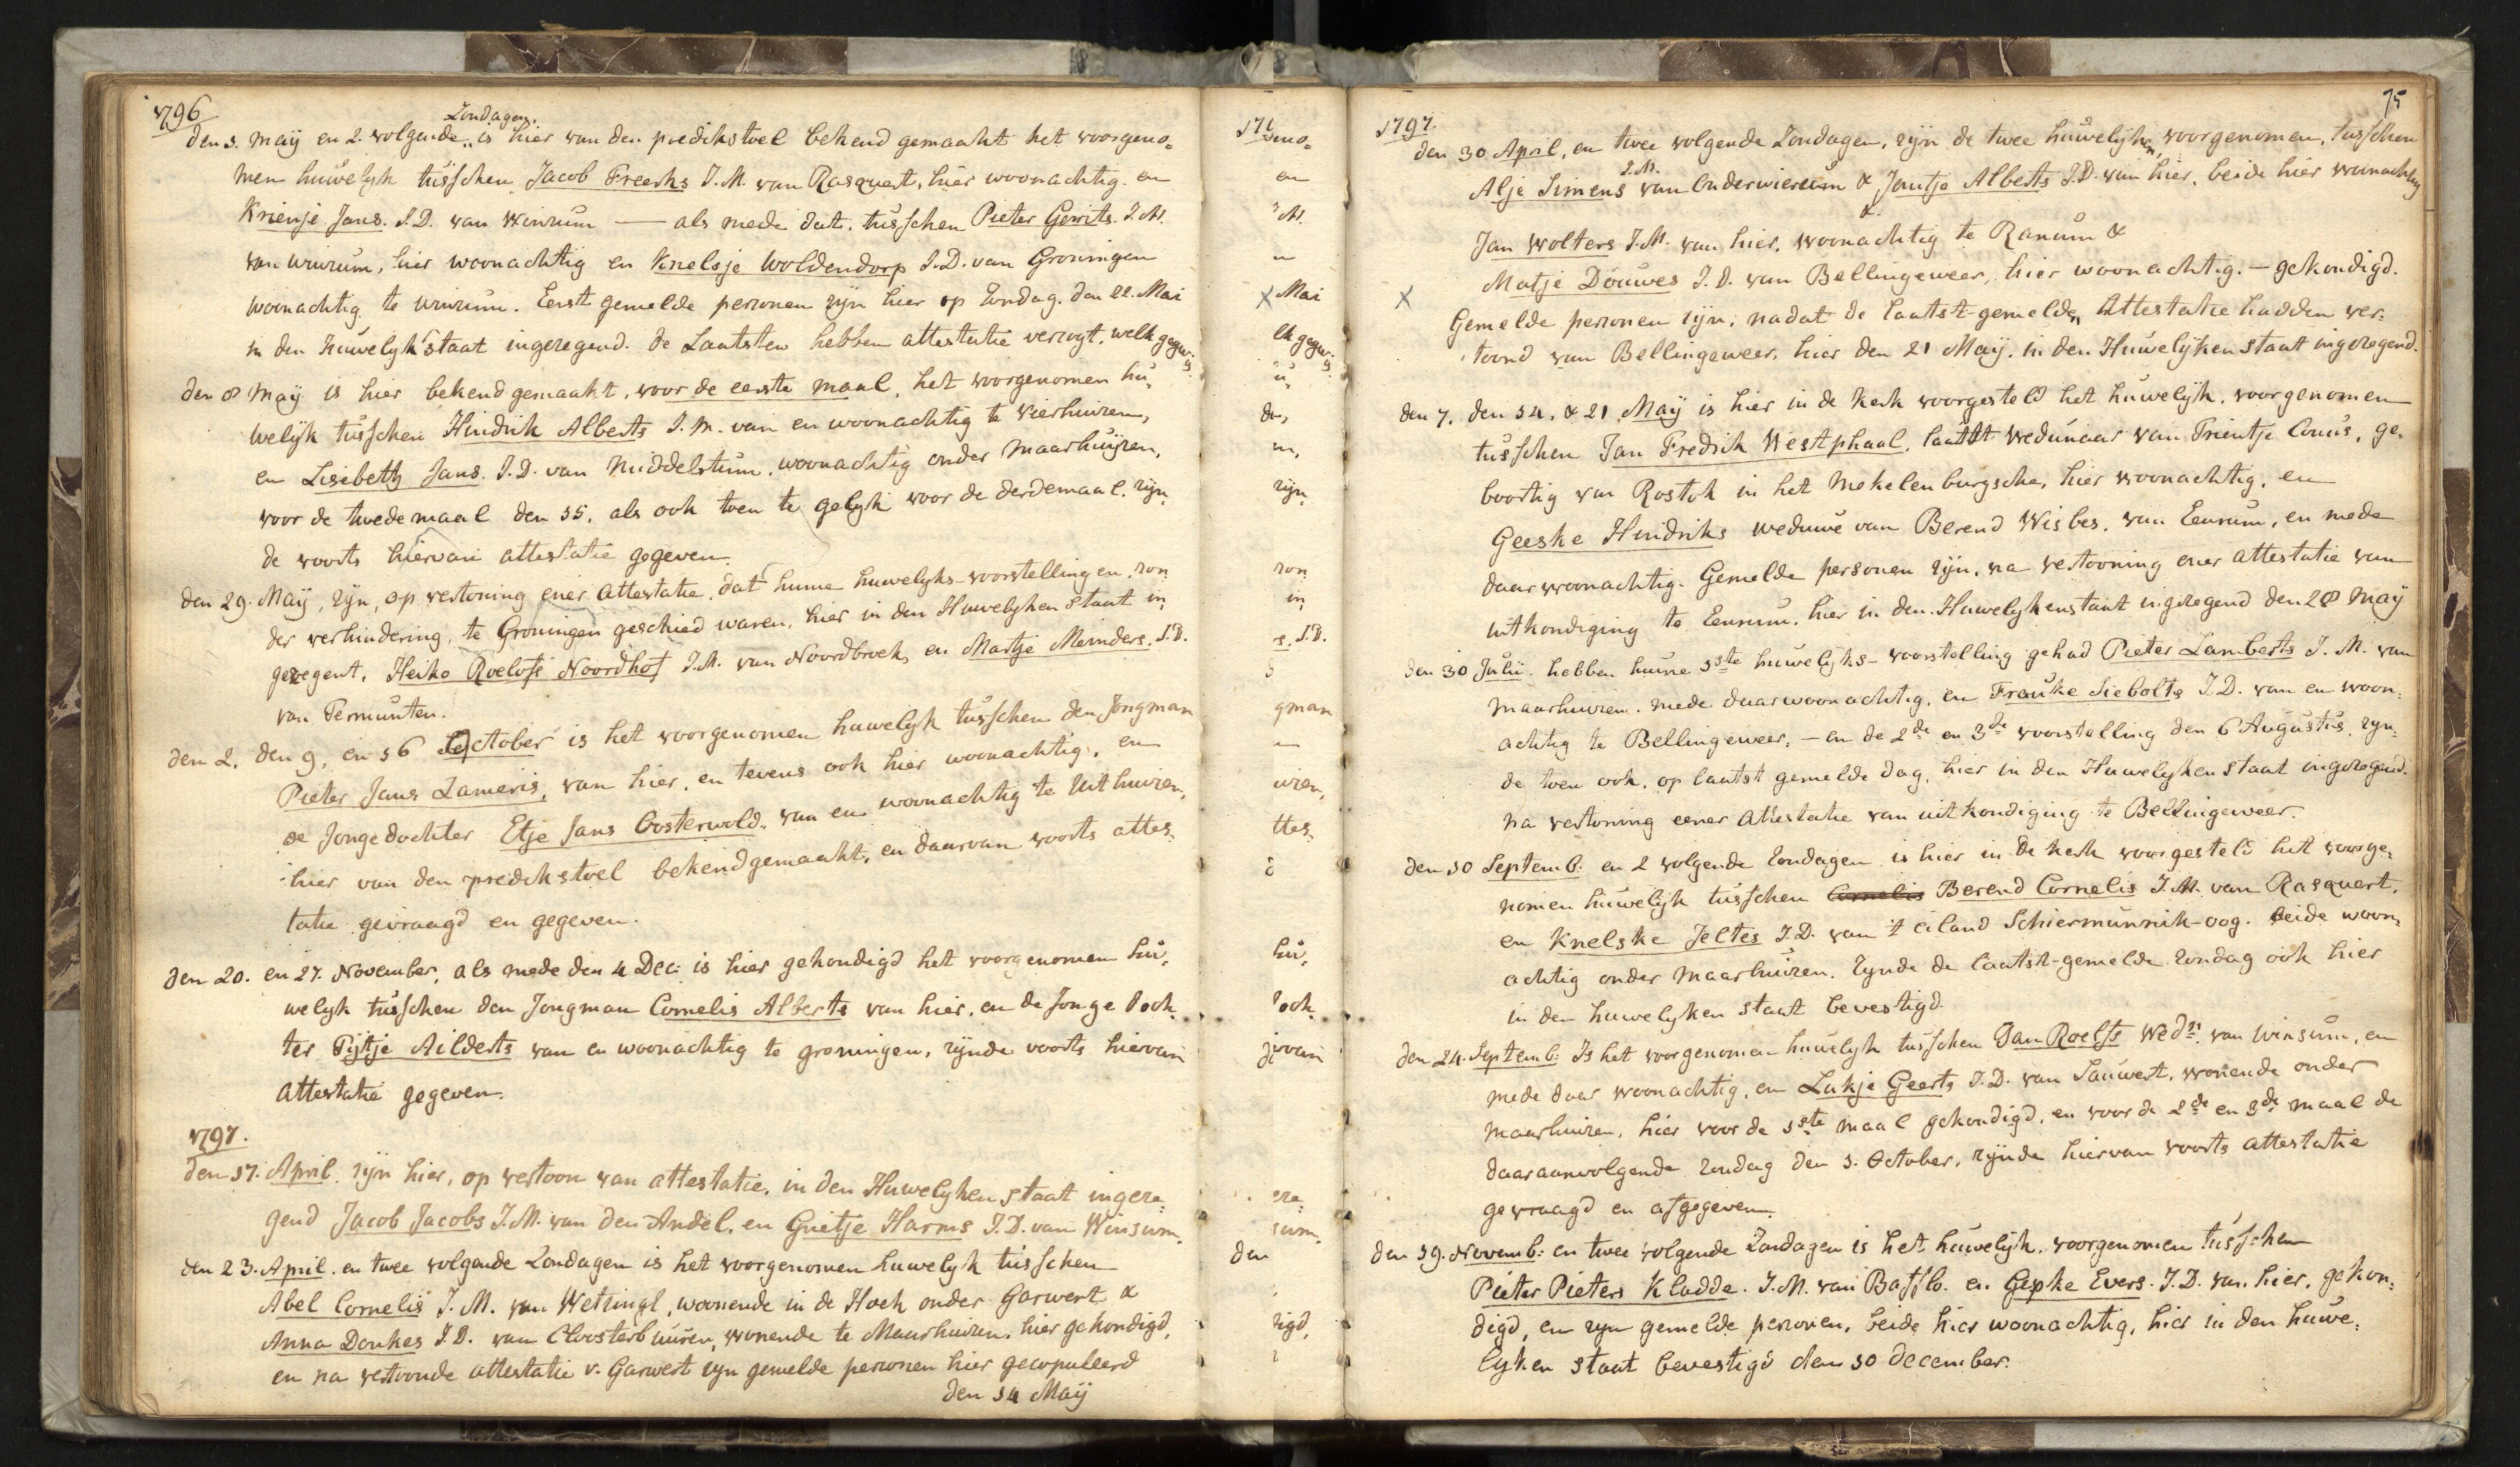 1796
Zondagen
den 1. Maÿ en 2. volgende is hier van den predikstoel bekend gemaakt het voorgeno=
men huwelyk tusschen Jacob Freerks J.M. van Rasquert, hier woonachtig en
Knienje Jans. J.D. van Winsum — als mede dat tusschen Pieter Gerrits J.M.
van Winsum, hier woonachtig en Knelsje Woldendorp J.D. van Groningen
woonachtig te Winsum. Eerst gemelde personen zyn hier op Zondag den 22. Mai
in den Huwelyk staat ingezegend. de Laatsten hebben attestatie verzogt, welk gegev: is.
den 8 Maÿ is hier bekend gemaakt, voor de eerste maal, het voorgenomen hu=
welyk tusschen Hindrik Alberts J.M. van en woonachtig te Vierhuizen,
en Lisebeth Jans. J.D. van Middelstum, woonachtig onder Maarhuizen,
voor de twedemaal den 15. als ook toen te gelyk voor de derdemaal, zijn=
de voorts hiervan attestatie gegeven.
den 29. Maÿ, zyn, op vertoning ener Attestatie, dat hunne huwelyks-voorstellingen, zon
der verhindering, te Groningen geschied waren, hier in den Huwelyken staat in,
gezegent, Heiko Roelofs Noordhof J.M. van Noordbroek, en Martje Meinders. J.D.
van Termunten.
den 2. den 9, en 16 October is het voorgenomen huwelyk tusschen den Jongman
Pieter Jans Lameris, van hier, en tevens ook hier woonachtig, en
de Jongedochter Etje Jans Oosterwold, van en woonachtig te Uithuizen,
hier van den predikstoel bekend gemaakt, en daarvan voorts attes=
tatie gevraagd en gegeven.
den 20. en 27. November, als mede den 4 Dec: is hier gekondigd het voorgenomen hu=
welyk tusschen den Jongman Cornelis Alberts van hier, en de Jonge Doch=
ter Tijtje Ailderts van en woonachtig te groningen, zijnde voorts hiervan
attestatie gegeven.
1797.
den 17. April. zijn hier, op vertoon van attestatie, in den Huwelyken staat ingeze=
gend Jacob Jacobs J.M. van den Andel, en Grietje Harms J.D. van Winsum.
den 23. April. en twee volgende Zondagen is het voorgenomen huwelyk tusschen
Abel Cornelis J.M. van Wetzingl, woonende in de Hoek onder Garwert &
Anna Donkes J.D. van Cloosterbuuren, wonende te Maarhuizen, hier gekondigd,
en na vertoonde attestatie v. Garwert zyn gemelde personen hier gecopuleerd
den 14 Maÿ
eno=
en
M.
Mai
lk gegev: is.
u,
de,
n,
zijn,
zon
in,
s. J.D.
gman
uizen,
ttes=
hu,
Doch,
rvan
eze=
sum.
den
digd,
75
1797.
den 30 April, en twee volgende Zondagen, zyn de twee huwelijken, voorgenomen, tusschen
J.M.
Alje Simens van Onderwierum & Jantje Alberts J.D. van hier, beide hier woonachtig
&
Jan Wolters J.M. van hier, woonachtig te Ranum &
Matje Douwes J.D. van Bellingeweer, hier woonachtig. — gekondigd.
Gemelde personen zijn, nadat de laatst-gemelden Attestatie hadden ver=
toond van Bellingeweer, hier den 21 Maÿ, in den Huwelyken staat ingezegend.
den 7. den 14. & 21 Maÿ is hier in de Kerk voorgesteld het huwelyk, voorgenomen
tusschen Jan Fredrik Westphaal, laatst weduwnaar van Trientje Conus, ge=
boortig van Rostok in het Mekelenburgsche, hier woonachtig, en
Geeske Hindriks weduwe van Berend Wisbes, van Eenrum, en mede
daar woonachtig. Gemelde personen zijn, na vertooning ener attestatie van
uitkondiging te Eenrum, hier in den Huwelykenstaat ingezegend den 28 Maÿ
den 30 Julii. hebben hunne 1ste huwelyks-voorstelling gehad Pieter Lamberts J.M. van
Maarhuizen, mede daarwoonachtig, en Frauke Siebolts J.D. van en woon=
achtig te Bellingeweer, — en de 2de en 3de voorstelling den 6 Augustus, zyn=
de toen ook, op laatst gemelde dag, hier in den Huwelyken staat ingezegend.
na vertoning eener Attestatie van uitkondiging te Bellingeweer.
den 10 Septemb: en 2 volgende Zondagen is hier in de Kerk voorgesteld het voorge=
nomen huwelyk tusschen Cornelis Berend Cornelis J.M. van Rasquert,
en Knelske Jeltes J.D. van 't eiland Schiermunnik-oog. beide woon=
achtig onder Maarhuizen. Zynde de laatst-gemelde Zondag ook hier
in den huwelyken staat bevestigd.
den 24. Septemb: Is het voorgenomen huwelyk tusschen Jan Roelfs Wedr. van Winsum, en
mede daar woonachtig, en Lukje Geerts J.D. van Sauwert, wonende onder
Maarhuizen, hier voor de 1ste maal gekondigd, en voor de 2de en 3de maal de
daaraanvolgende Zondag den 1. October, zijnde hiervan voorts attestatie
gevraagd en afgegeven.
den 19. Novemb: en twee volgende Zondagen is het huwelyk, voorgenomen tusschen
Pieter Pieters Kladde. J.M. van Bafflo. en Gepke Evers. J.D. van hier, gekon=
digd, en zyn gemelde personen, beide hier woonachtig, hier in den huwe=
lyken staat bevestigd den 10 December.